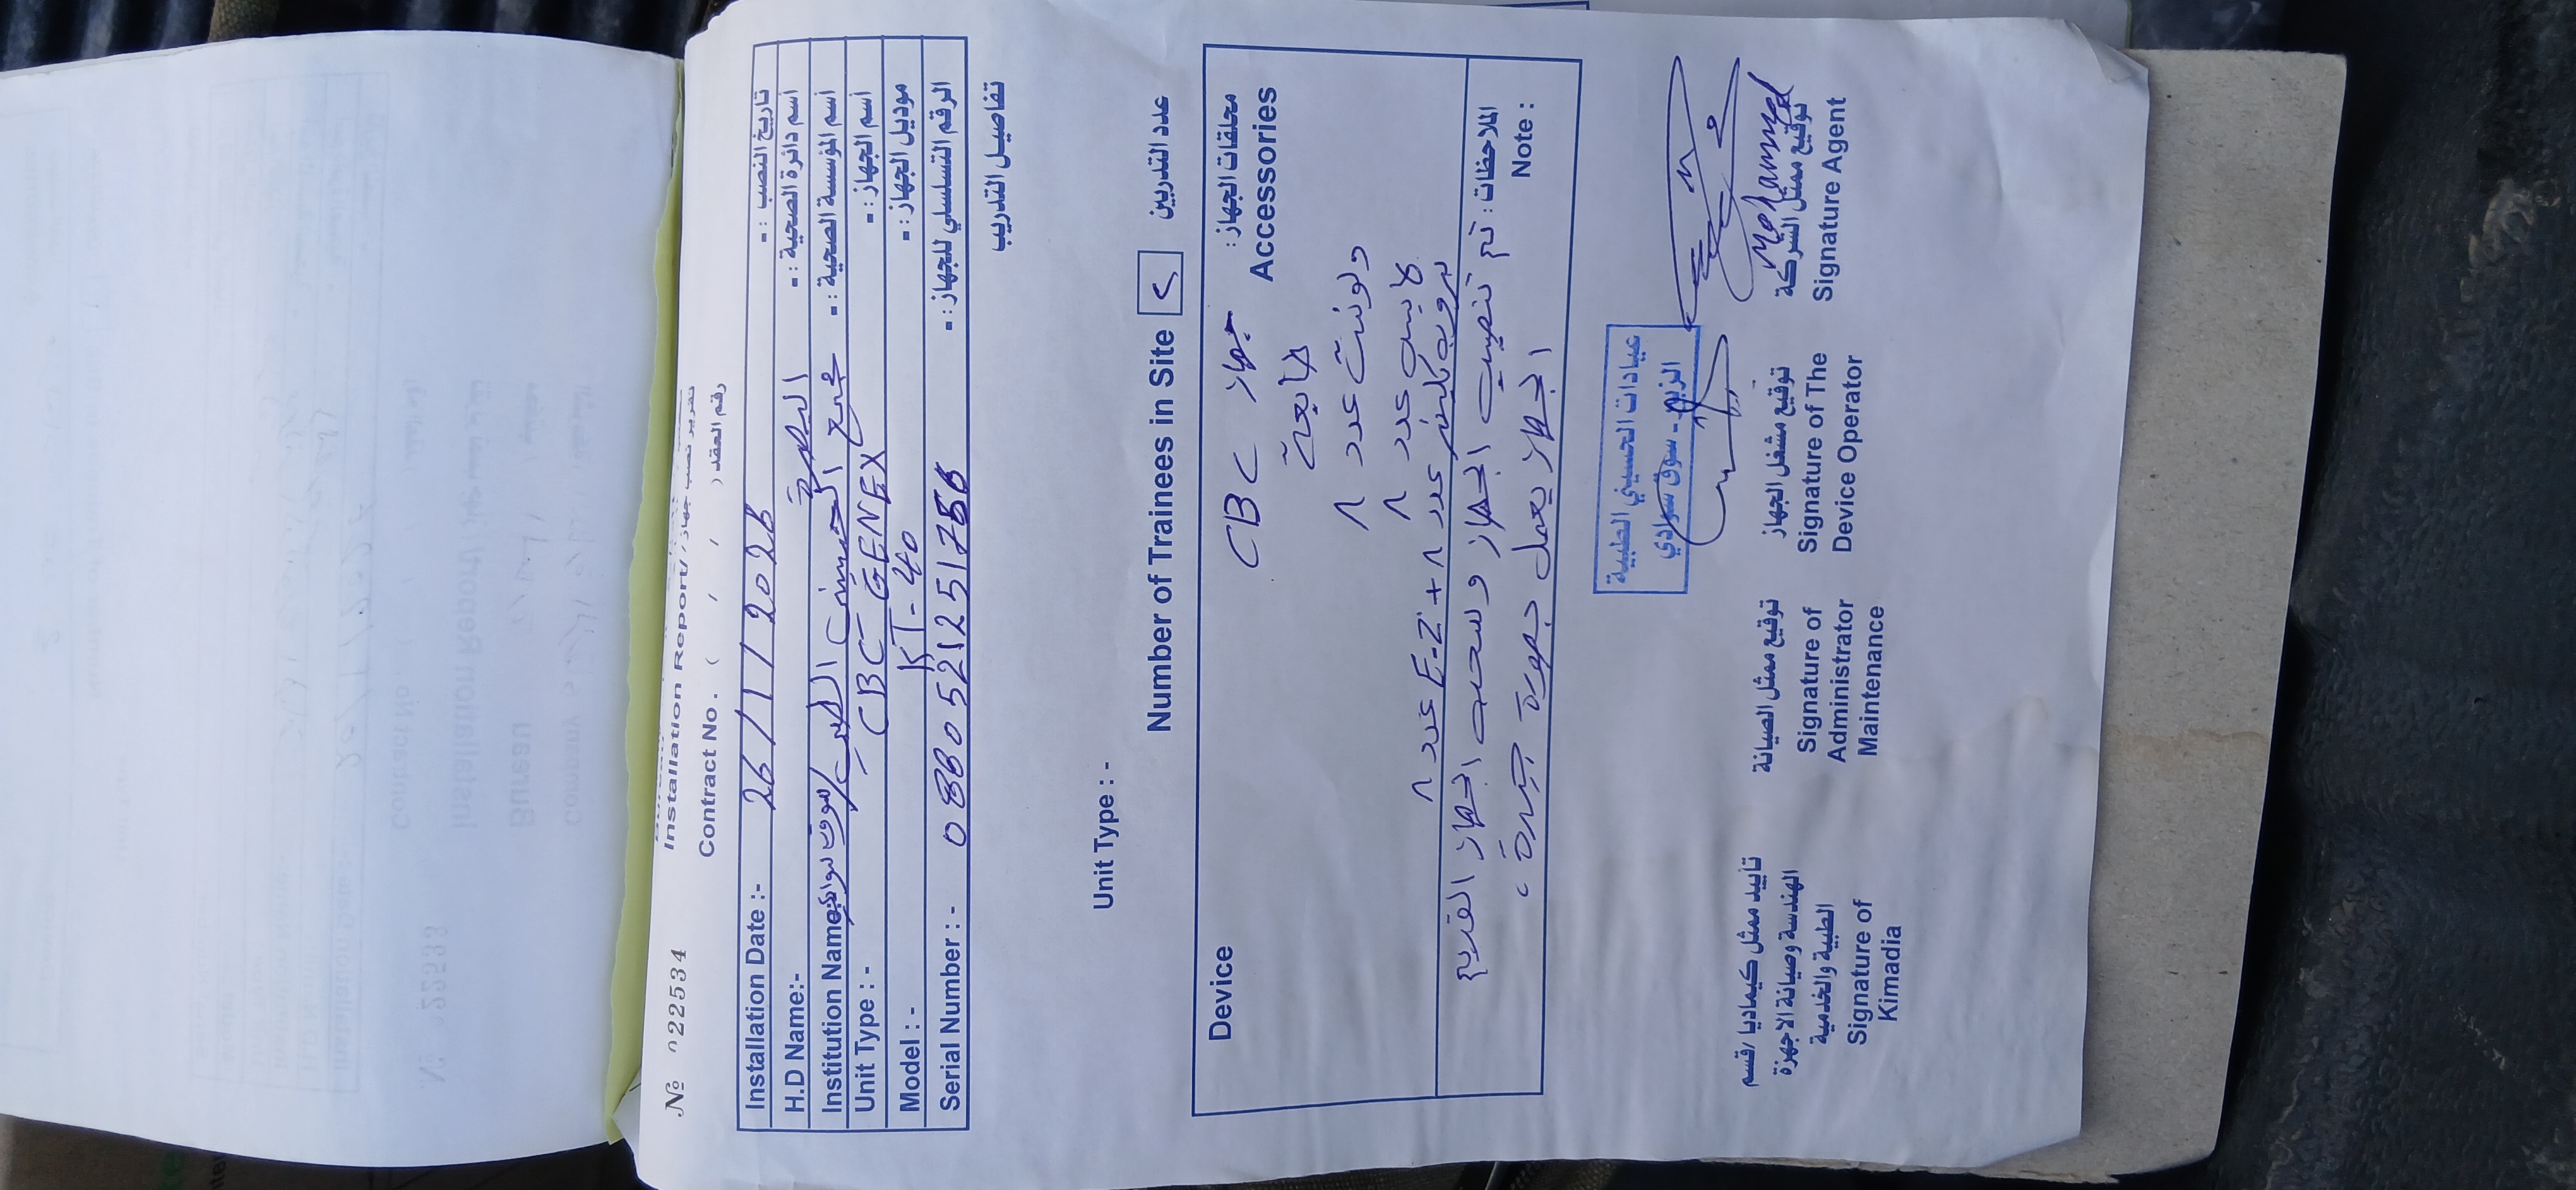 تقرير نصب جهاز /
Installation Report/
رقم العقد ( / / )
Contract No. ( / / )
№ 022534
Installation Date :- 26 / 1 / 2026 تاريخ النصب :-
H.D Name:- البصرة اسم دائرة الصحية :-
Institution Name:- مجمع الحسيني الطبي / اسم المؤسسة الصحية :-
Unit Type :- CBC GENEX اسم الجهاز :-
Model :- KT-40 موديل الجهاز :-
Serial Number :- الرقم التسلسلي للجهاز :-
تفاصيل التدريب
Unit Type :-
Number of Trainees in Site ٢ عدد التدربين
Device
ملحقات الجهاز :
Accessories
CBC جهاز
طابعة
دلونت عدد ١
لايس عدد ١
بروب كلينر عدد ١ + E-Z عدد ١
الملاحظات : تم تنصيب الجهاز وسحب الجهاز القديم
Note :
الجهاز يعمل بصورة جيدة .
عيادات الحسيني الطبية
الزبير - سوق سوادي
Mohammed
توقيع ممثل الشركة
Signature Agent
توقيع مشغل الجهاز
Signature of The
Device Operator
توقيع ممثل الصيانة
Signature of
Administrator
Maintenance
تأييد ممثل كيماديا / قسم
الهندسة وصيانة الاجهزة
الطبية والخدمية
Signature of
Kimadia